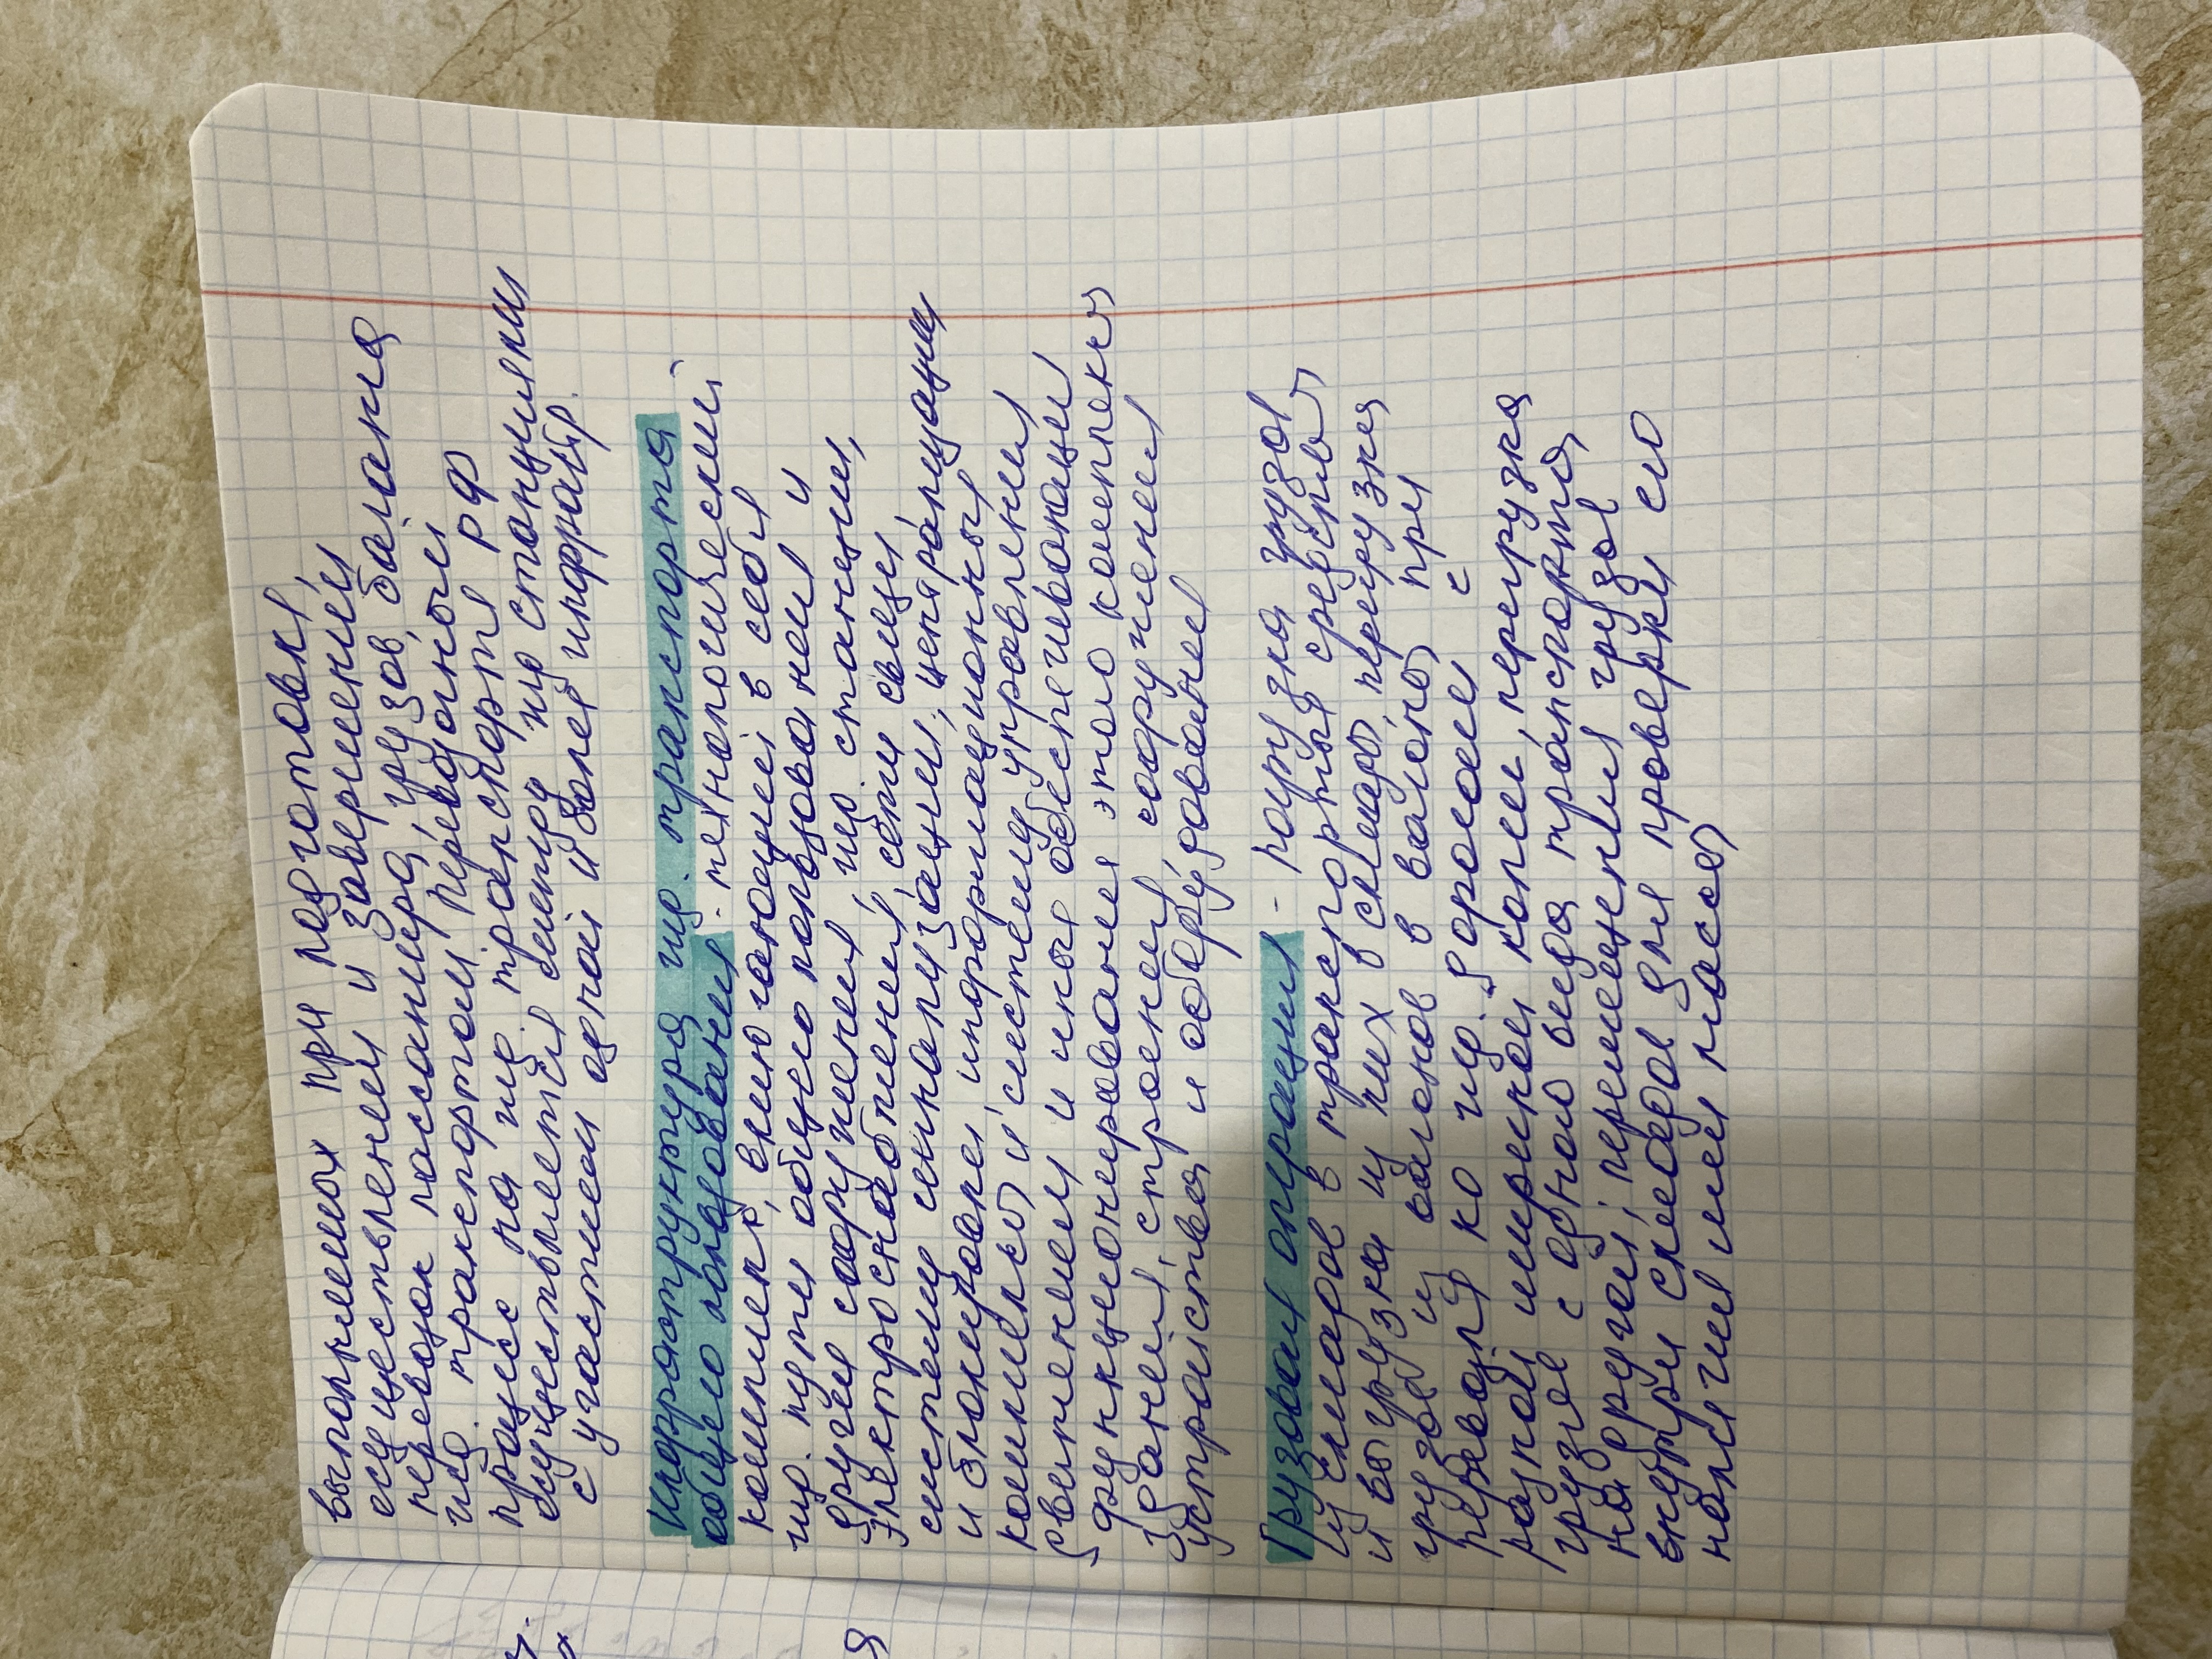 выполняемых при подготовке,
осуществлении и завершении
перевозок пассажира, грузов, багажа
жд. транспортом, перевозочный
процесс на жд транспорте РФ
осуществляется между жд станциями
с участием одной и более инфраструктур.
Инфраструктура жд. транспорта
общего пользования - технологический
комплекс, включающий в себя
жд. пути общего пользования и
другие сооружения, жд станции,
электроснабжения, сети связи,
систему сигнализации, централизации
и блокировки, информационный
комплекс и систему управления
движением и иные обеспечивающие
функционирование этого комплекса
здания, строения, сооружения,
устройства и оборудование
Грузовая операция - погрузка грузов
из складов в транспортные средства
и выгрузка из них в склады, перегрузка
грузов из вагонов в вагоны при
перевозке по жд. дороге с
разной шириной колеи, перегрузка
грузов с одного вида транспорта
на другой, перемещения грузов
внутри складов для проверки его
наличия или массы
я